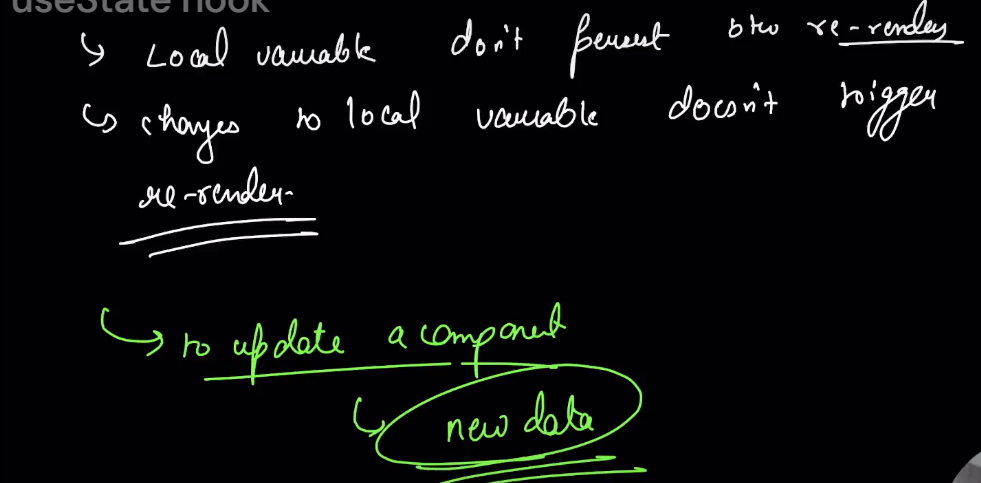 useState hook
↳ Local variable don't persist btw re-render
↳ changes to local variable doesn't trigger
re-render.
↳ to update a component
↳ new data